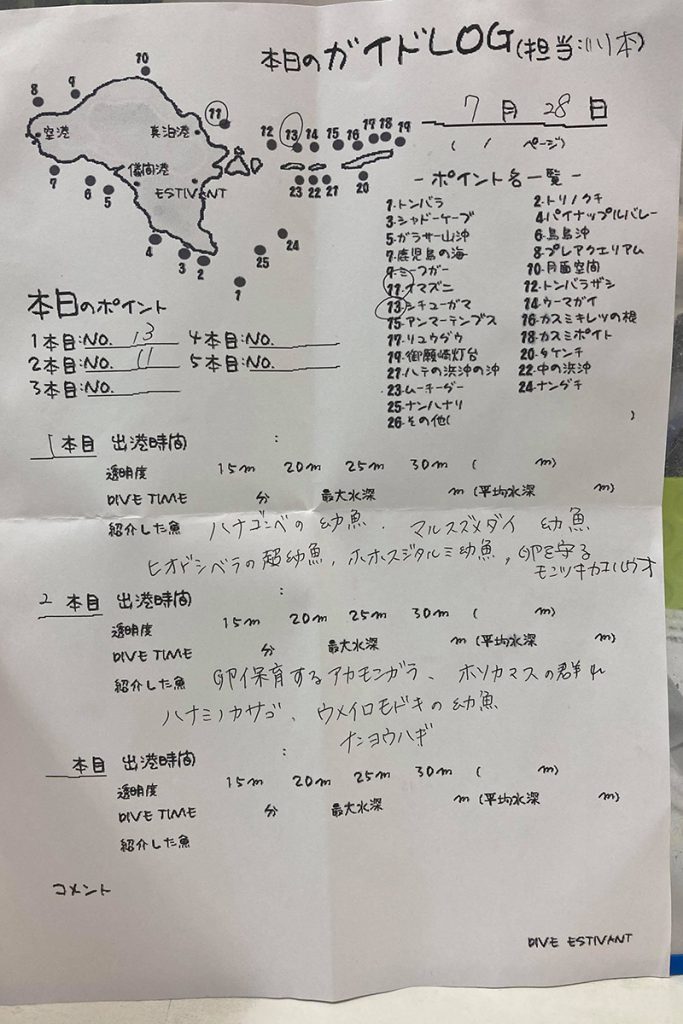 本日のガイドLOG(担当:川本)
7月28日
( / ページ)
10
8 9 11
空港 真泊港
12 13 14 15 16 17 18 19
儀間港
7 6 5 ESTIVANT
23 22 21 20
4 3 2 24
25
1
-ポイント名一覧-
1.トンバラ 2.トリノクチ
3.シャドーケーブ 4.パイナップルバレー
5.ガラサー山沖 6.鳥島沖
7.鹿児島の海 8.プレアクエリアム
9.ミーフガー 10.月面空間
11.イマズニ 12.トンバラザシ
13.シチューガマ 14.ウーマガイ
15.アンマーテンブス 16.カスミキレツの根
17.リュウダウ 18.カスミポイト
19.御願崎灯台 20.タケンチ
21.ハテの浜沖の沖 22.中の浜沖
23.ムーチーダー 24.ナングチ
25.ナンハナリ
26.その他( )
本日のポイント
1本目:NO. 13 4本目:NO.
2本目:NO. 11 5本目:NO.
3本目:NO.
1本目 出港時間 :
透明度 15m 20m 25m 30m ( m)
DIVE TIME 分 最大水深 m (平均水深 m)
紹介した魚 ハナゴンベの幼魚、マルスズメダイ 幼魚
ヒオドシベラの超幼魚、ホホスジタルミ幼魚、卵を守る
モンツキカエルウオ
2本目 出港時間 :
透明度 15m 20m 25m 30m ( m)
DIVE TIME 分 最大水深 m (平均水深 m)
紹介した魚 卵保育するアカモンガラ、ホソカマスの群れ
ハナミノカサゴ、ウメイロモドキの幼魚
ナンヨウハギ
本目 出港時間 :
透明度 15m 20m 25m 30m ( m)
DIVE TIME 分 最大水深 m (平均水深 m)
紹介した魚
コメント
DIVE ESTIVANT